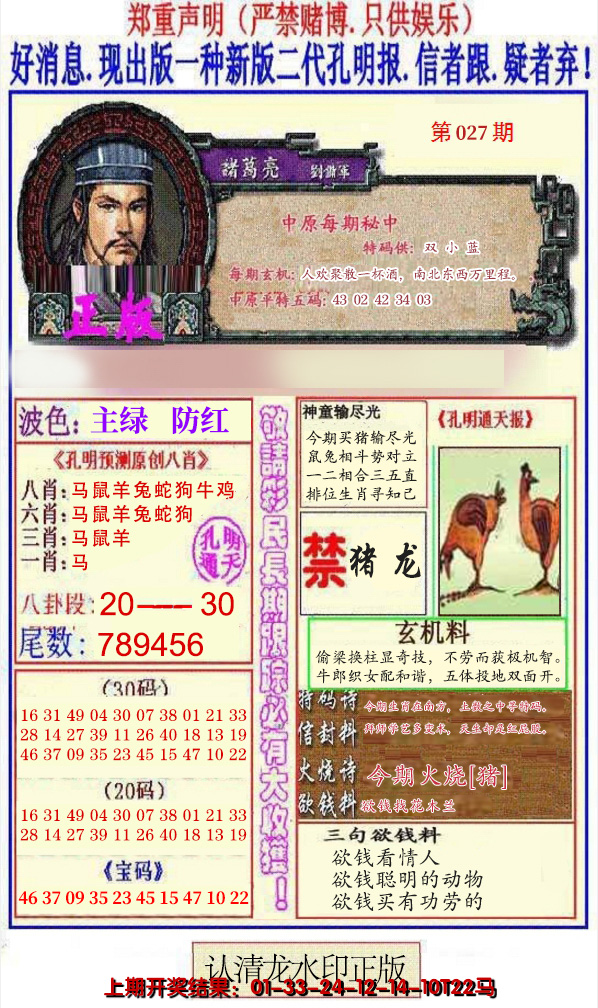 郑重声明（严禁赌博.只供娱乐）
好消息.现出版一种新版二代孔明报.信者跟.疑者弃！
第027期
諸葛亮 劉備軍
中原每期秘中
特码供：双 小 蓝
每期玄机：人欢聚散一杯酒，南北东西万里程。
中原平特五码：43 02 42 34 03
正版
波色：主绿 防红
《孔明预测原创八肖》
八肖：马鼠羊兔蛇狗牛鸡
六肖：马鼠羊兔蛇狗
三肖：马鼠羊
一肖：马
孔明
通天
八卦段：20——30
尾数：789456
（30码）
16 31 49 04 30 07 38 01 21 33
28 14 27 39 11 26 40 18 13 19
46 37 09 35 23 45 15 47 10 22
（20码）
16 31 49 04 30 07 38 01 21 33
28 14 27 39 11 26 40 18 13 19
《宝码》
46 37 09 35 23 45 15 47 10 22
敬請彩民長期跟踪必有大收獲！
神童输尽光
今期买猪输尽光
鼠兔相斗势对立
一二相合三五直
排位生肖寻知己
《孔明通天报》
禁 猪 龙
玄机料
偷梁换柱显奇技，不劳而获极机智。
牛郎织女配和谐，五体投地双面开。
特码诗
今期生肖在南方，上数之中寻特码。
信封料
拜师学艺多变术，天生却是红屁股。
火烧诗
今期火烧[猪]
欲钱料
欲钱找花木兰
三句欲钱料
欲钱看情人
欲钱聪明的动物
欲钱买有功劳的
认清龙水印正版
上期开奖结果：01-33-24-12-14-10T22马